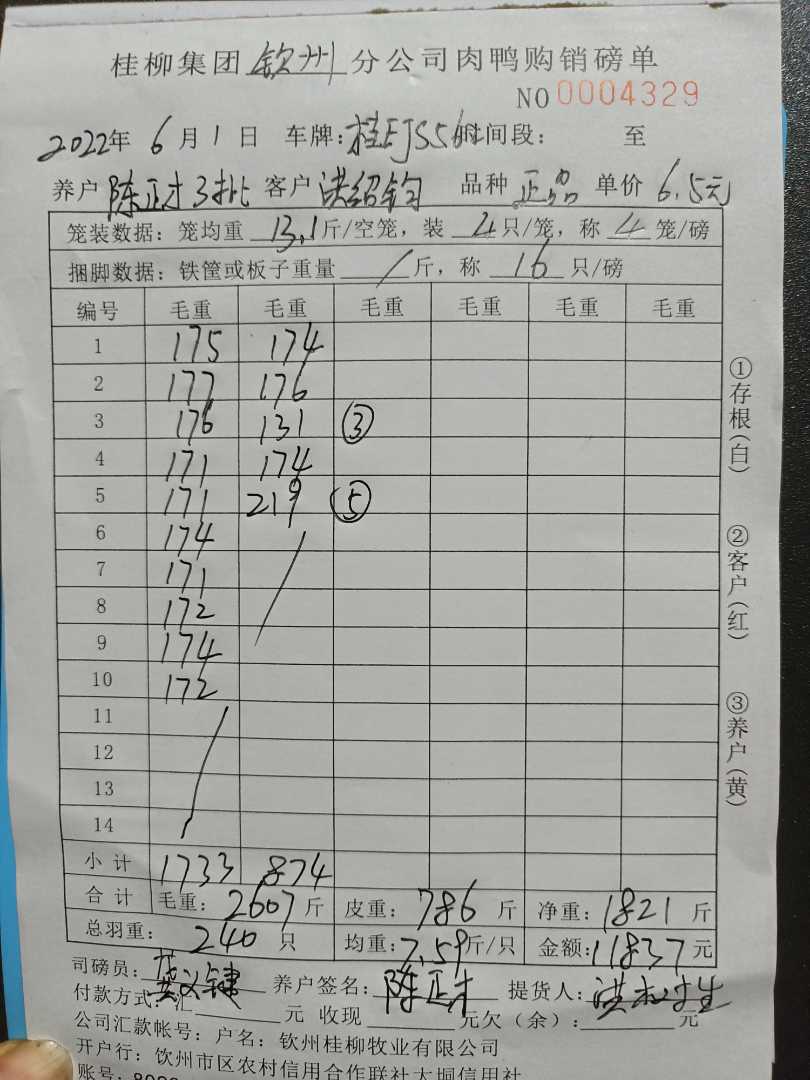 桂柳集团 钦州 分公司肉鸭购销磅单
NO 0004329
2022年 6 月 1 日 车牌: 时间段: 至
养户 陈正才3批 客户 洪绍钧 品种 正品 单价 6.5元
笼装数据: 笼均重 13.1 斤/空笼, 装 4 只/笼, 称 4 笼/磅
捆脚数据: 铁筐或板子重量 / 斤, 称 16 只/磅
编号 毛重 毛重 毛重 毛重 毛重 毛重
1 175 174
2 177 176
3 176 131 ③
4 171 174
5 171 219 ⑤
6 174
7 171
8 172
9 174
10 172
11
12
13
14
小计 1733 874
合计 毛重: 2607 斤 皮重: 786 斤 净重: 1821 斤
总羽重: 240 只 均重: 7.59 斤/只 金额: 11837 元
司磅员: 养户签名: 陈正才 提货人:
付款方式: 汇 元 收现 元欠(余): 元
公司汇款帐号: 户名: 钦州桂柳牧业有限公司
开户行: 钦州市区农村信用合作联社大垌信用社
账号:
①存根(白)
②客户(红)
③养户(黄)